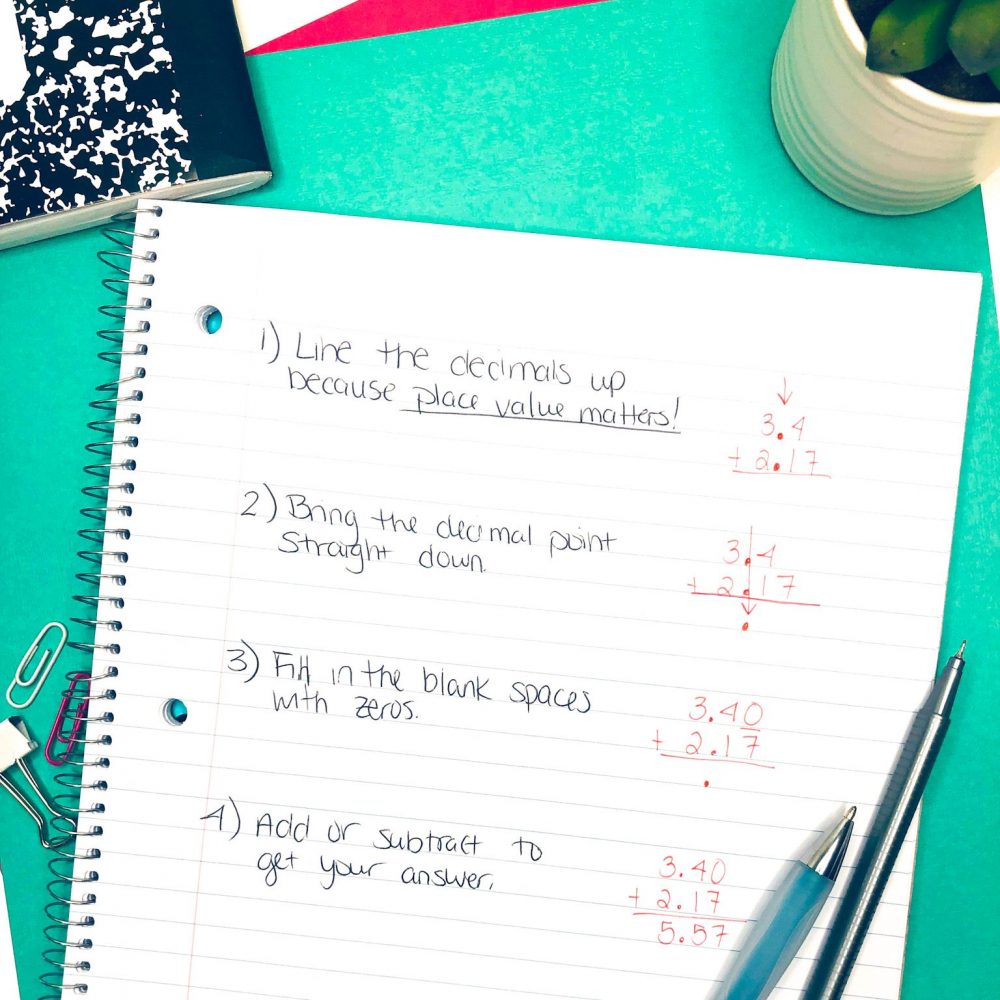 1) Line the decimals up
because place value matters!
↓
3.4
+ 2.17
2) Bring the decimal point
straight down.
3.4
+ 2.17
.
3) Fill in the blank spaces
with zeros.
3.40
+ 2.17
.
4) Add or subtract to
get your answer.
3.40
+ 2.17
5.57